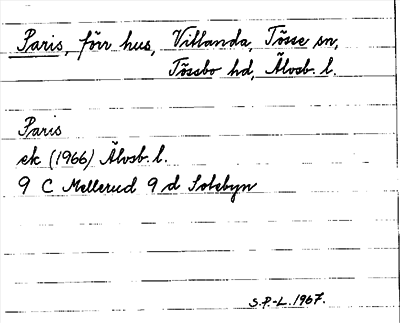 Paris, förr hus, Vitlanda, Tösse sn,
Tössbo hd, Älvsb. l.
Paris
ek (1966) Älvsb. l.
9 C Mellerud 9 d Sotebyn
S.P-L. 1967.